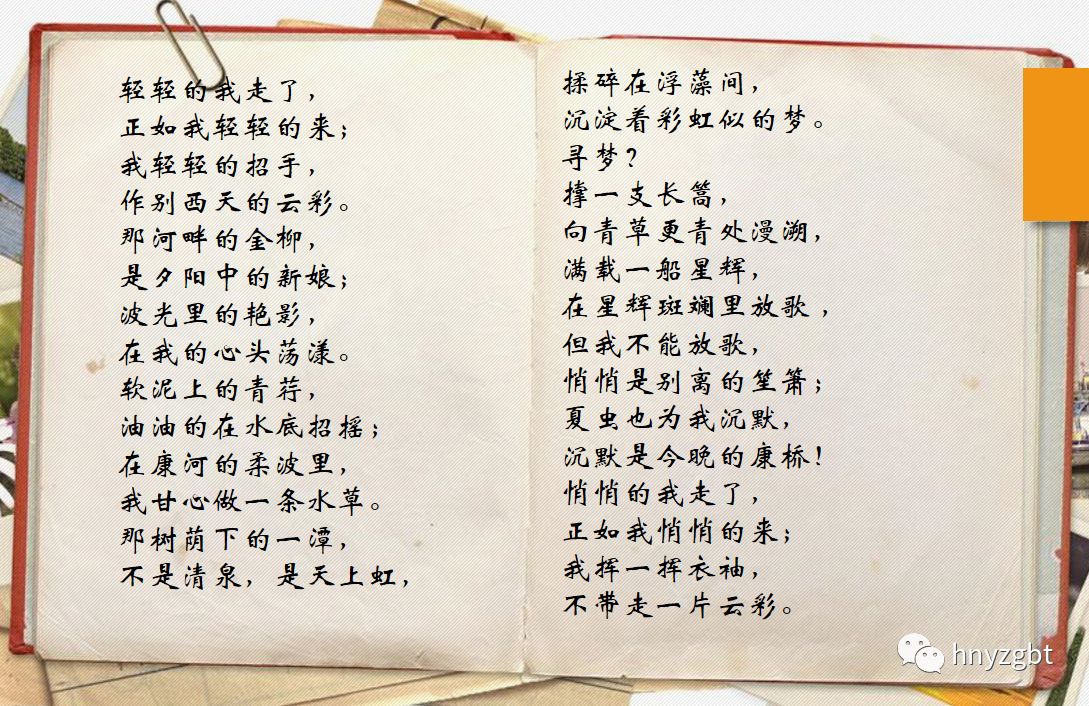 轻轻的我走了，
正如我轻轻的来；
我轻轻的招手，
作别西天的云彩。
那河畔的金柳，
是夕阳中的新娘；
波光里的艳影，
在我的心头荡漾。
软泥上的青荇，
油油的在水底招摇；
在康河的柔波里，
我甘心做一条水草。
那树荫下的一潭，
不是清泉，是天上虹，
揉碎在浮藻间，
沉淀着彩虹似的梦。
寻梦？
撑一支长篙，
向青草更青处漫溯，
满载一船星辉，
在星辉斑斓里放歌，
但我不能放歌，
悄悄是别离的笙箫；
夏虫也为我沉默，
沉默是今晚的康桥！
悄悄的我走了，
正如我悄悄的来；
我挥一挥衣袖，
不带走一片云彩。
hnyzgbt